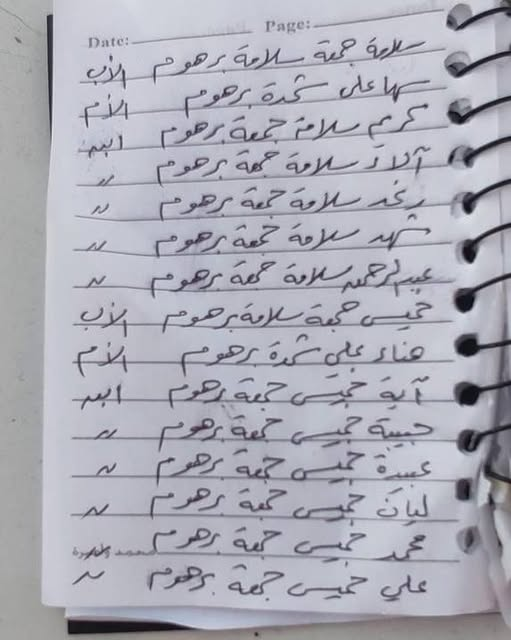 Date: Page:
سلامة جمعة سلامة برهوم الأب
سها علي شحدة برهوم الأم
كريم سلامة جمعة برهوم ابن
آلاء سلامة جمعة برهوم "
رغد سلامة جمعة برهوم "
شهد سلامة جمعة برهوم "
عبدالرحمن سلامة جمعة برهوم "
خميس جمعة سلامة برهوم الأب
هناء علي شحدة برهوم الأم
آية خميس جمعة برهوم ابن
حبيبة خميس جمعة برهوم "
عبيدة خميس جمعة برهوم "
ليان خميس جمعة برهوم "
محمد خميس جمعة برهوم
علي خميس جمعة برهوم "